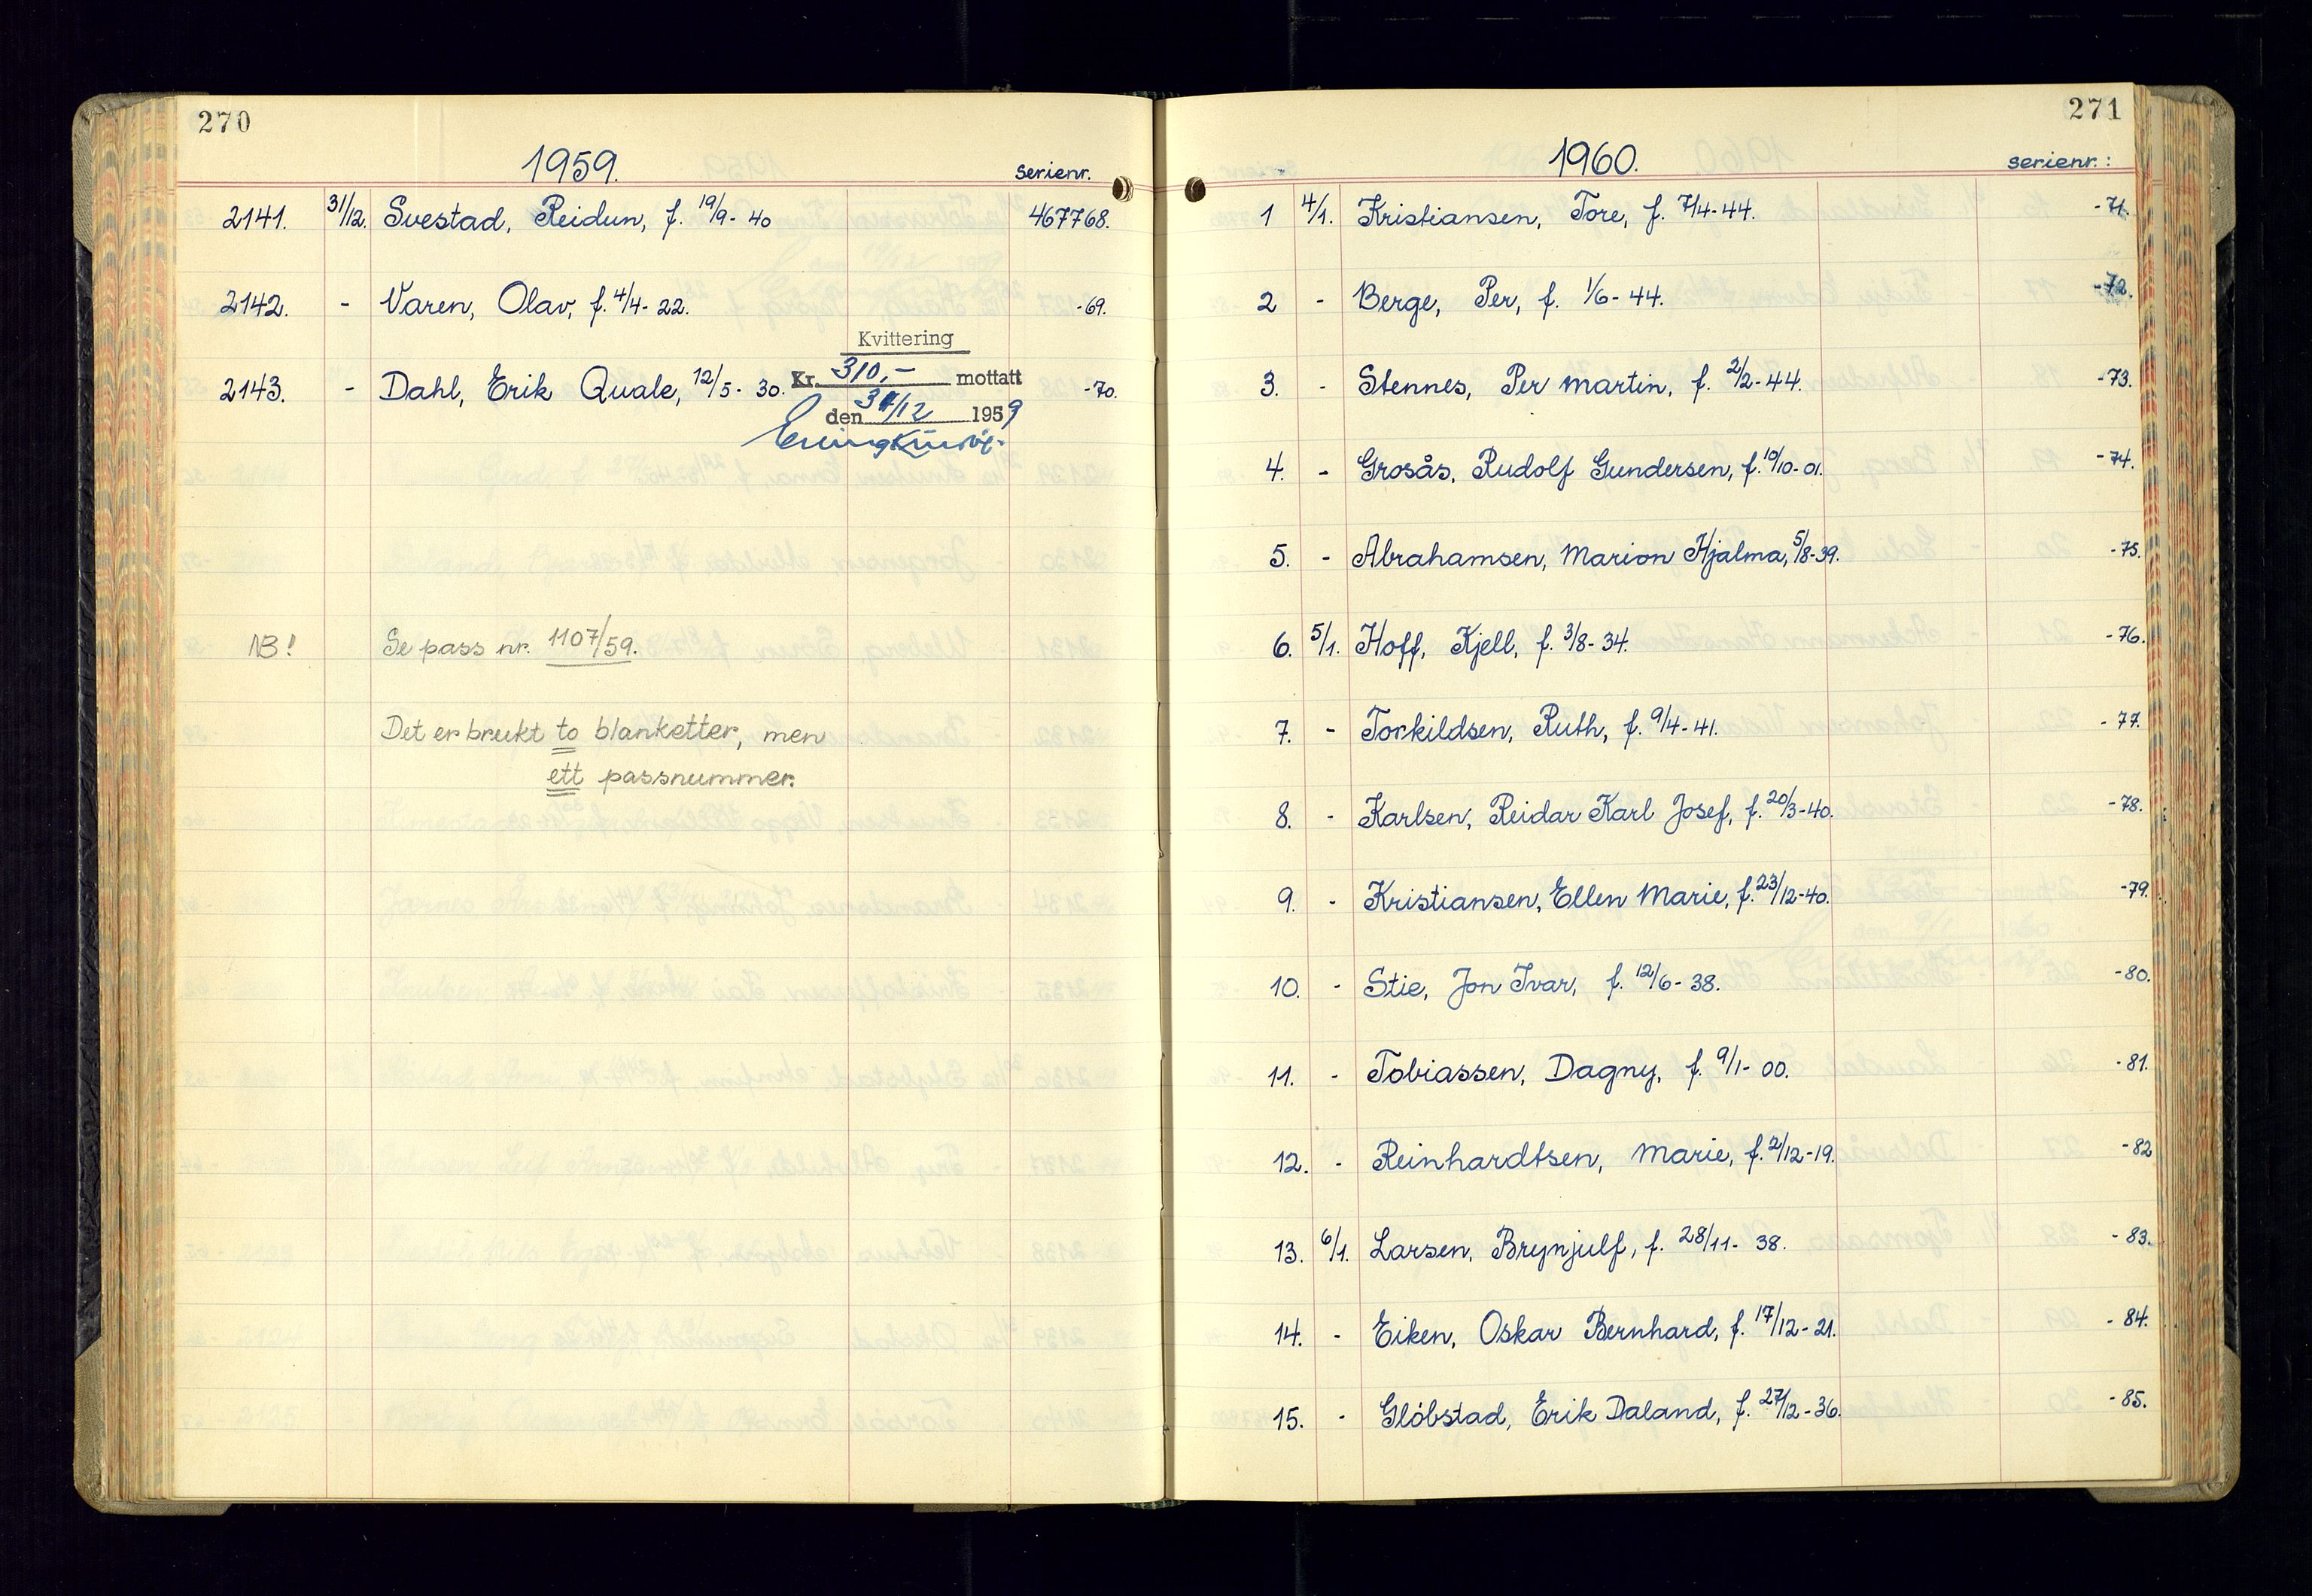 270
1959.
serienr.
2141. 31/12. Svestad, Reidun, f. 19/9-40 467768.
2142. - Varen, Olav, f. 4/4-22. -69.
Kvittering
2143. - Dahl, Erik Quale, 12/5-30. Kr. 310,- mottatt -70.
den 31/12 1959
NB! Se pass nr. 1107/59.
Det er brukt to blanketter, men
ett passnummer.
271
1960.
serienr.:
1 4/1. Kristiansen, Tore, f. 7/4-44. -71.
2 - Berge, Per, f. 1/6-44. -72.
3. - Stennes, Per Martin, f. 2/2-44. -73.
4. - Grosås, Rudolf Gundersen, f. 10/10-01. -74.
5. - Abrahamsen, Marion Hjalma, 5/8-39. -75.
6. 5/1. Hoff, Kjell, f. 3/8-34. -76.
7. - Torkildsen, Ruth, f. 9/4-41. -77.
8. - Karlsen, Reidar Karl Josef, f. 20/3-40. -78.
9. - Kristiansen, Ellen Marie, f. 23/12-40. -79.
10. - Stie, Jon Ivar, f. 12/6-38. -80.
11. - Tobiassen, Dagny, f. 9/1-00. -81.
12. - Reinhardtsen, Marie, f. 2/12-19. -82
13. 6/1. Larsen, Brynjulf, f. 28/11-38. -83.
14. - Eiken, Oskar Bernhard, f. 17/12-21. -84.
15. - Glöbstad, Erik Daland, f. 27/12-36. -85.